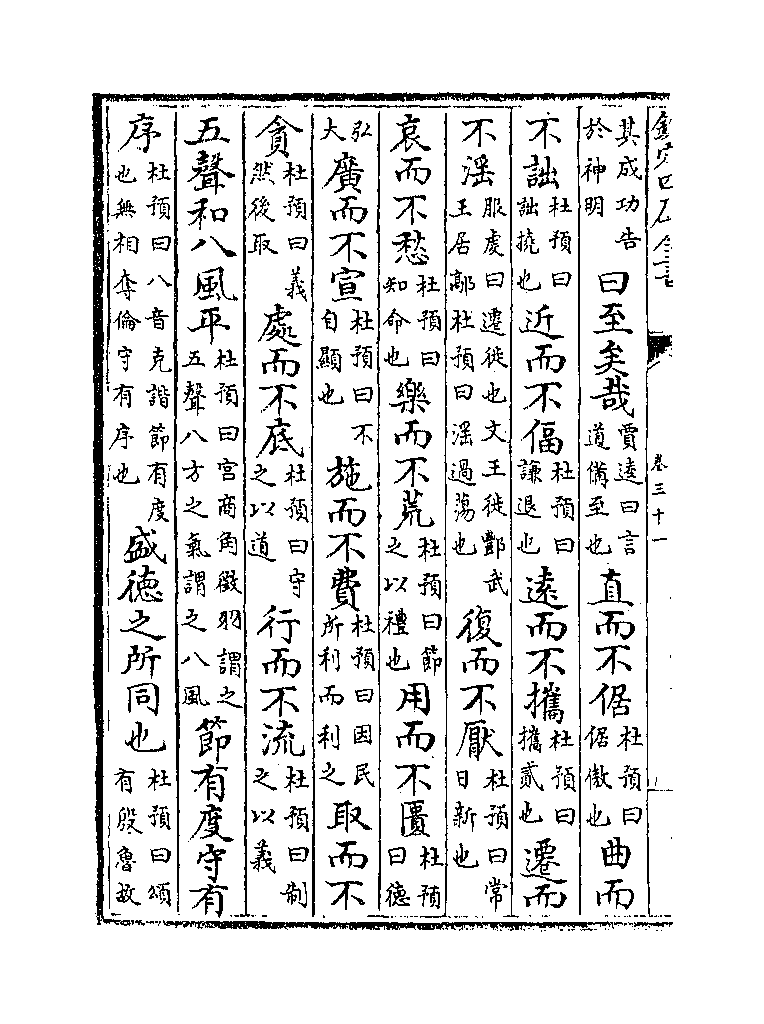 欽定四庫全書
卷三十一
其成功告於神明曰至矣哉賈逵曰言道備至也直而不倨杜預曰倨傲也曲而
不詘杜預曰詘撓也近而不偪杜預曰謙退也遠而不攜杜預曰攜貳也遷而
不淫服虔曰遷徙也文王徙酆武王居鄗杜預曰淫過蕩也復而不厭杜預曰常日新也
哀而不愁杜預曰知命也樂而不荒杜預曰節之以禮也用而不匱杜預曰德
弘大廣而不宣杜預曰不自顯也施而不費杜預曰因民所利而利之取而不
貪杜預曰義然後取處而不底杜預曰守之以道行而不流杜預曰制之以義
五聲和八風平杜預曰宮商角徵羽謂之五聲八方之氣謂之八風節有度守有
序杜預曰八音克諧節有度也無相奪倫守有序也盛德之所同也杜預曰頌有殷魯故